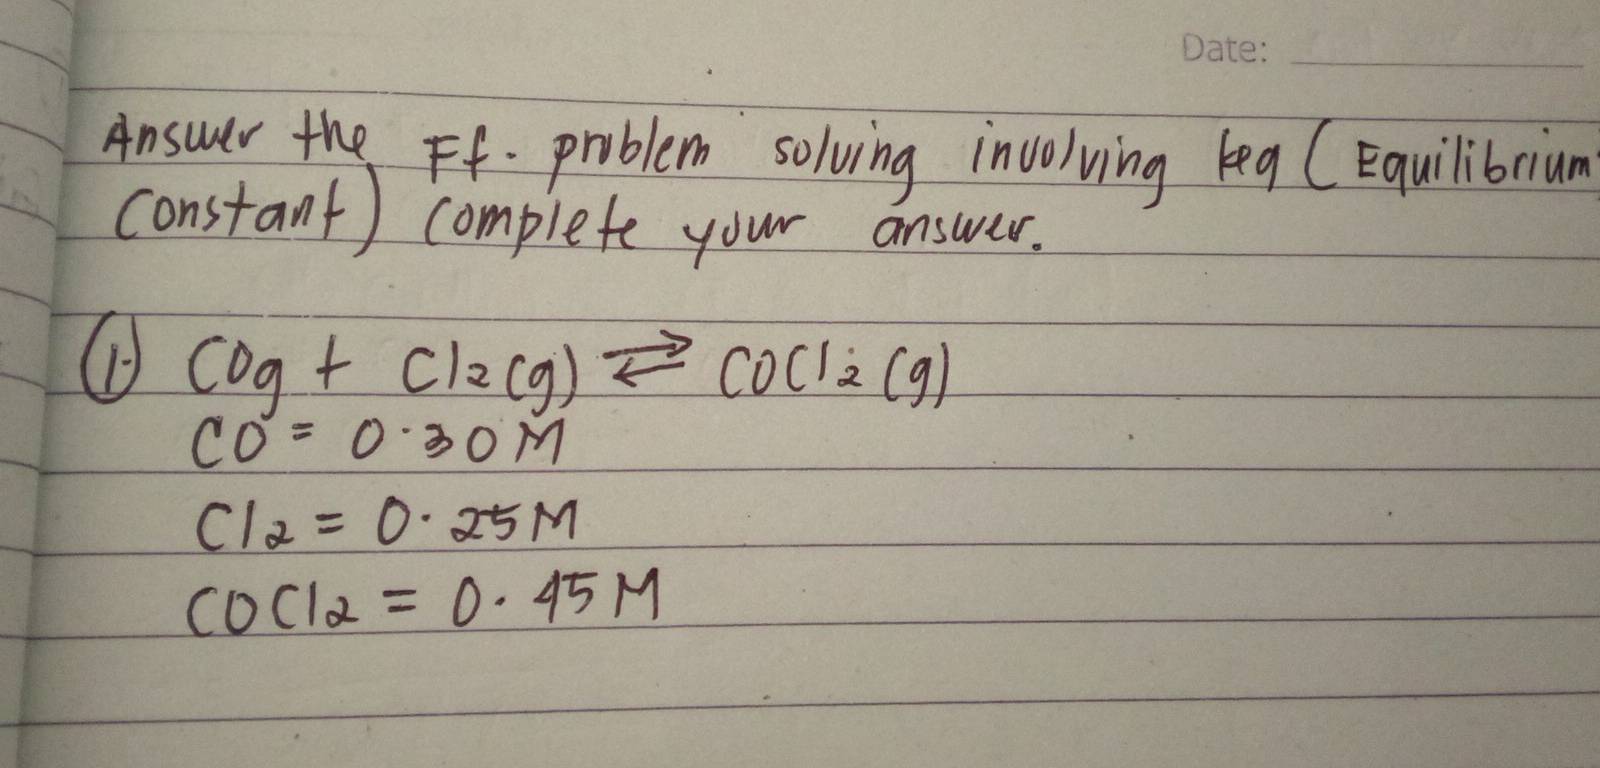 Date:
Answer the Ff. problem solving involving keq (Equilibrium
Constant) complete your answer.
1. COg + Cl2(g) ⇌ COCl2 (g)
CO = 0.30M
Cl2 = 0.25M
COCl2 = 0.45M